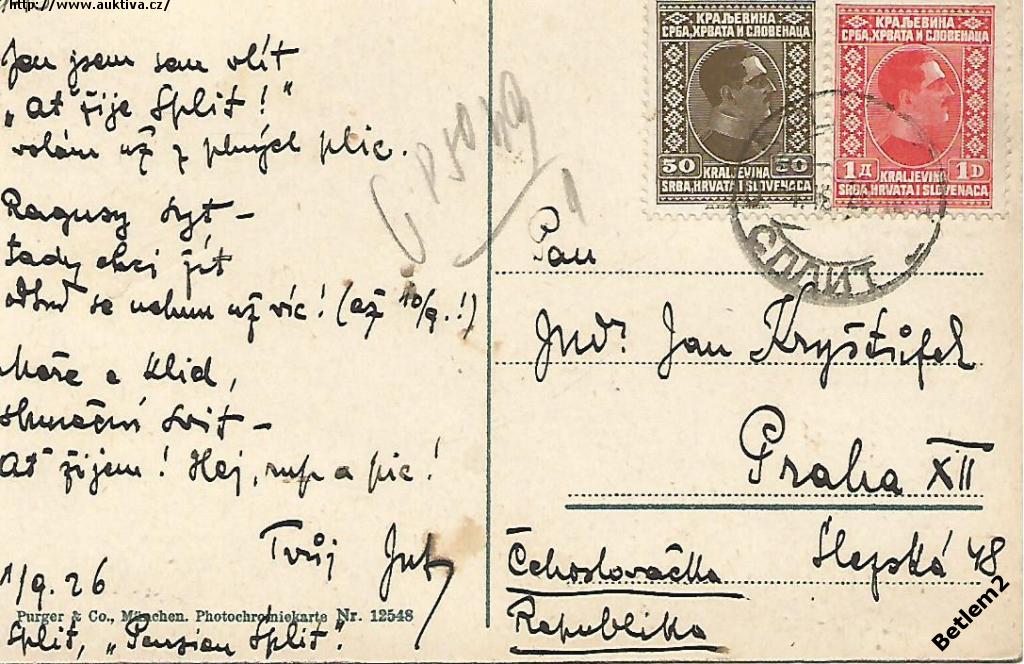 http://www.auktiva.cz/
Jan jsem sem vlít
„Ať žije Split!"
volám už z plných plic.
Ragusy syt –
tady chci žít
odtud se nehnu už víc! (až 10/9.!)
Moře a klid,
sluneční svit –
Ať žijem! Hej, rup a pic!
Tvůj
1/9. 26
Split, „Pension Split".
Purger & Co., München. Photochromiekarte Nr. 12548
КРАЉЕВИНА
СРБА, ХРВАТА И СЛОВЕНАЦА
50 50
KRALJEVINA
SRBA, HRVATA I SLOVENACA
КРАЉЕВИНА
СРБА, ХРВАТА И СЛОВЕНАЦА
1Д 1D
KRALJEVINA
SRBA, HRVATA I SLOVENACA
СПЛИТ
Pan
JUDr. Jan Kryštůfek
Praha XII
Slezská 48
Čechoslovačka
Republika
Betlem2